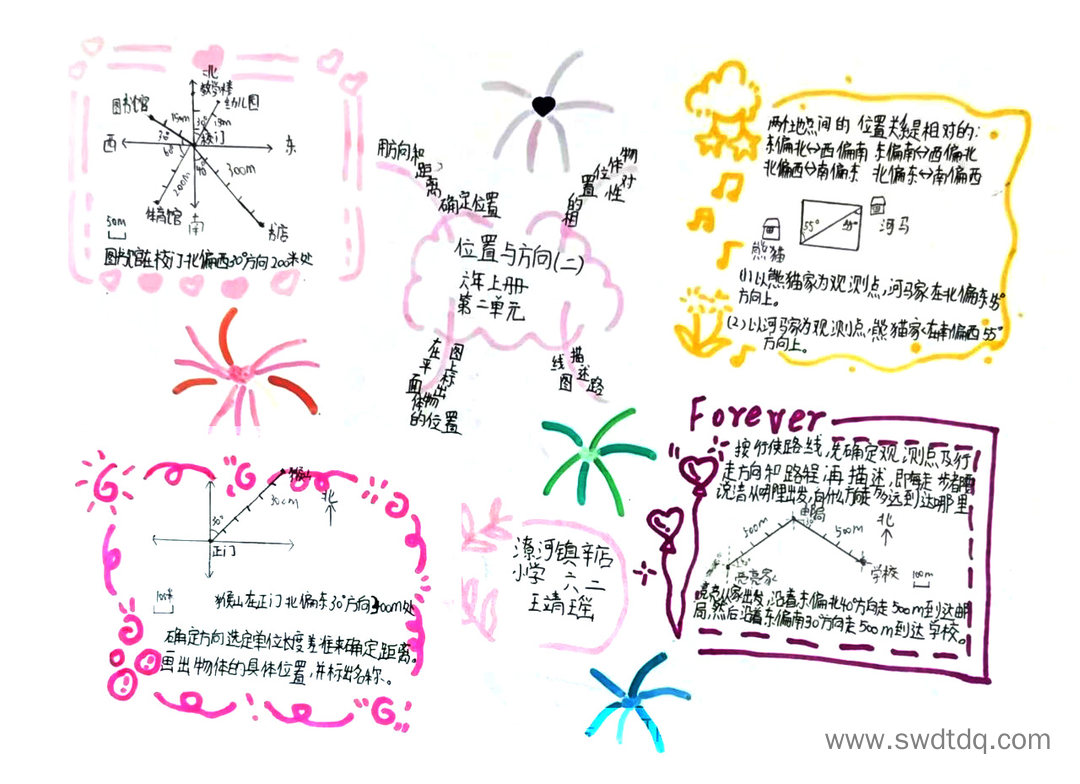 位置与方向(二)
六年上册
第二单元
用方向和距离
确定位置
物体位置的相对性
在平面图上标出
物体的位置
描述路线图
北
教学楼
幼儿园
图书馆
150m
30°
校门
西
东
300m
200m
体育馆
书店
南
50m
图书馆在校门北偏西30°方向200米处
两个地点间的位置关系是相对的:
东偏北↔西偏南 东偏南↔西偏北
北偏西↔南偏东 北偏东↔南偏西
河马
55°
55°
熊猫
(1)以熊猫家为观测点,河马家在北偏东55°
方向上。
(2)以河马家为观测点,熊猫家在南偏西55°
方向上。
猴山
30cm
北
30°
正门
100米
猴山在正门北偏东30°方向300m处
确定方向选定单位长度
来确定距离。
画出物体的具体位置,并标出名称。
漷河镇辛店
小学 六二
王靖瑶
Forever
按行使路线,先确定观测点及行
走方向和路程,再描述,即每走一步都要
说清从哪里出发,向什么方向走多远到达哪里
邮局
500m
500m
北
学校
亮亮家
100m
亮亮从家出发,沿着东偏北40°方向走500m到达邮
局,然后沿着东偏南30°方向走500m到达学校。
www.swdtdq.com